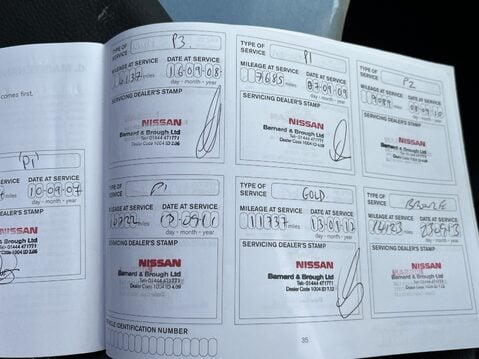 comes first.
P1
miles
10-09-07
day - month - year
DEALER'S STAMP
NISSAN
Barnard & Brough Ltd
TYPE OF SERVICE
P3
MILEAGE AT SERVICE
DATE AT SERVICE
miles
16 09 08
day - month - year
SERVICING DEALER'S STAMP
NISSAN
Barnard & Brough Ltd
Tel: 01444 471771
TYPE OF SERVICE
P1
MILEAGE AT SERVICE
DATE AT SERVICE
7685 miles
07 09 09
day - month - year
SERVICING DEALER'S STAMP
NISSAN
Barnard & Brough Ltd
Tel: 01444 471771
TYPE OF SERVICE
P2
MILEAGE AT SERVICE
DATE AT SERVICE
9089 miles
08 09 10
day - month - year
SERVICING DEALER'S STAMP
NISSAN
Barnard & Brough Ltd
Tel: 01444 471771
TYPE OF SERVICE
P1
MILEAGE AT SERVICE
DATE AT SERVICE
miles
day - month - year
SERVICING DEALER'S STAMP
NISSAN
Barnard & Brough Ltd
Tel: 01444 471771
TYPE OF SERVICE
GOLD
MILEAGE AT SERVICE
DATE AT SERVICE
11337 miles
13 09 12
day - month - year
SERVICING DEALER'S STAMP
NISSAN
Barnard & Brough Ltd
Tel: 01444 471771
TYPE OF SERVICE
BRONZE
MILEAGE AT SERVICE
DATE AT SERVICE
miles
day - month - year
SERVICING DEALER'S STAMP
NISSAN
Barnard & Brough Ltd
Tel: 01444 471771
VEHICLE IDENTIFICATION NUMBER
35